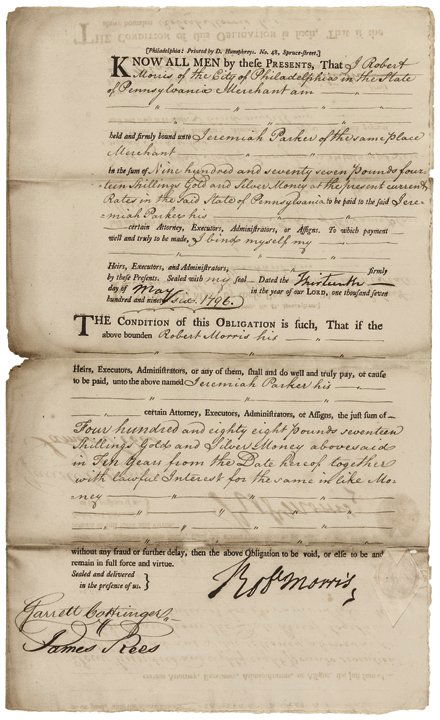 [Philadelphia: Printed by D. Humphreys. No. 48, Spruce-street.]
KNOW ALL MEN by these PRESENTS, That I Robert
Morris of the City of Philadelphia in the State
of Pennsylvania Merchant am
held and firmly bound unto Jeremiah Parker of the same place
Merchant
in the sum of Nine hundred and seventy seven pounds four-
teen Shillings Gold and Silver Money at the present current
Rates in the said State of Pennsylvania to be paid to the said Jere-
miah Parker his
certain Attorney, Executors, Administrators, or Assigns. To which payment
well and truly to be made, I bind myself my
Heirs, Executors, and Administrators, firmly
by these Presents. Sealed with my seal Dated the Thirteenth
day of May in the year of our LORD, one thousand seven
hundred and ninety six. 1796.
THE CONDITION of this OBLIGATION is such, That if the
above bounden Robert Morris his
Heirs, Executors, Administrators, or any of them, shall and do well and truly pay, or cause
to be paid, unto the above named Jeremiah Parker his
certain Attorney, Executors, Administrators, or Assigns, the just sum of
Four hundred and eighty eight pounds seventeen
Shillings Gold and Silver Money abovesaid
in Ten Years from the Date hereof together
with lawful Interest for the same in like Mo-
ney
without any fraud or further delay, then the above Obligation to be void, or else to be and
remain in full force and virtue.
Sealed and delivered
in the presence of us.
Robt Morris
Garrett Cottringer
James Rees